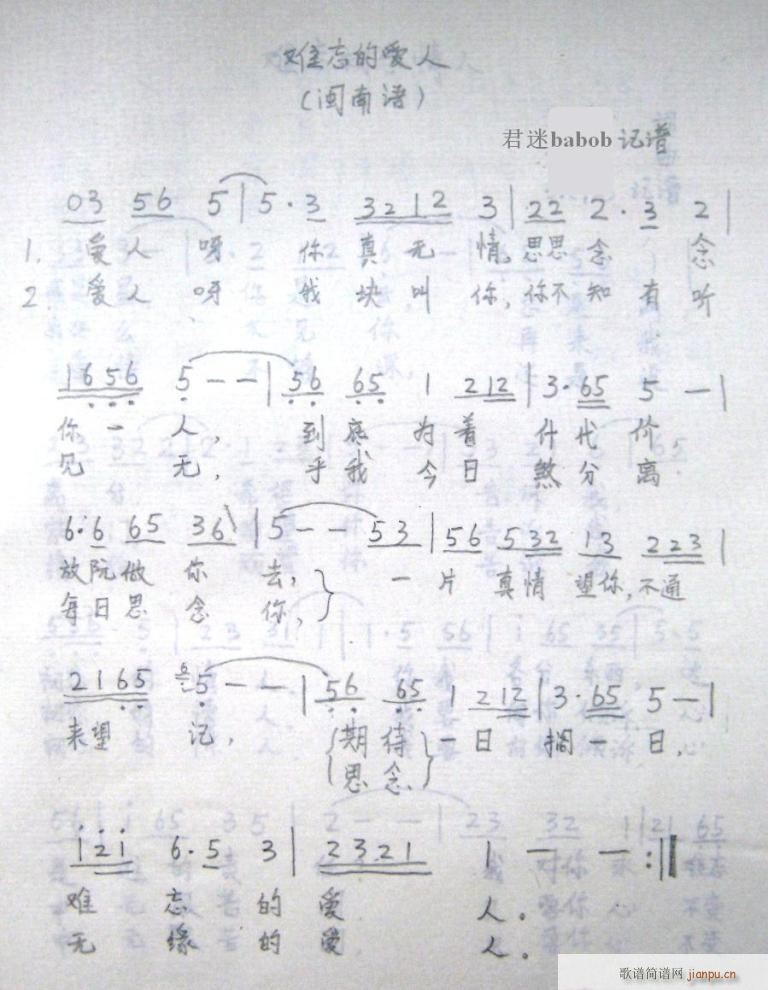 难忘的爱人
（闽南语）
君迷babob 记谱
03 56 5 | 5·3 3212 3 | 22 2·3 2 |
1. 爱人 呀 你 真 无 情，思思 念 念
2. 爱人 呀 我 块 叫 你，你不 知 有 听
1656 5 – – | 56 65 1 212 | 3·65 5 – |
你 一 人， 到 底 为 着 什 代 价
见 无， 乎 我 今 日 煞 分 离
6·6 65 36 | 5 – – 53 | 56 532 13 223 |
放阮做 你 去， 一 片 真情 望你，不通
每日思 念 你，
2165 5 – – | 56 65 1 212 | 3·65 5 – |
来望 记， 期待 一 日 搁 一 日，
思念
121 6·5 3 | 2321 1 – – :||
难 忘 的 爱 人。
无 缘 的 爱 人。
歌谱简谱网 jianpu.cn